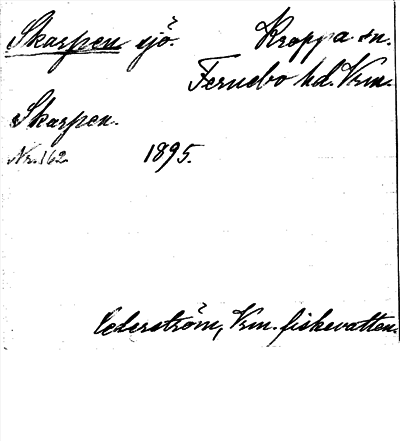 Skarpen sjö. Kroppa sn.
Fernebo hd. Vrm.
Skarpen.
Nr. 162. 1895.
Cederström, Vrm. fiskevatten.